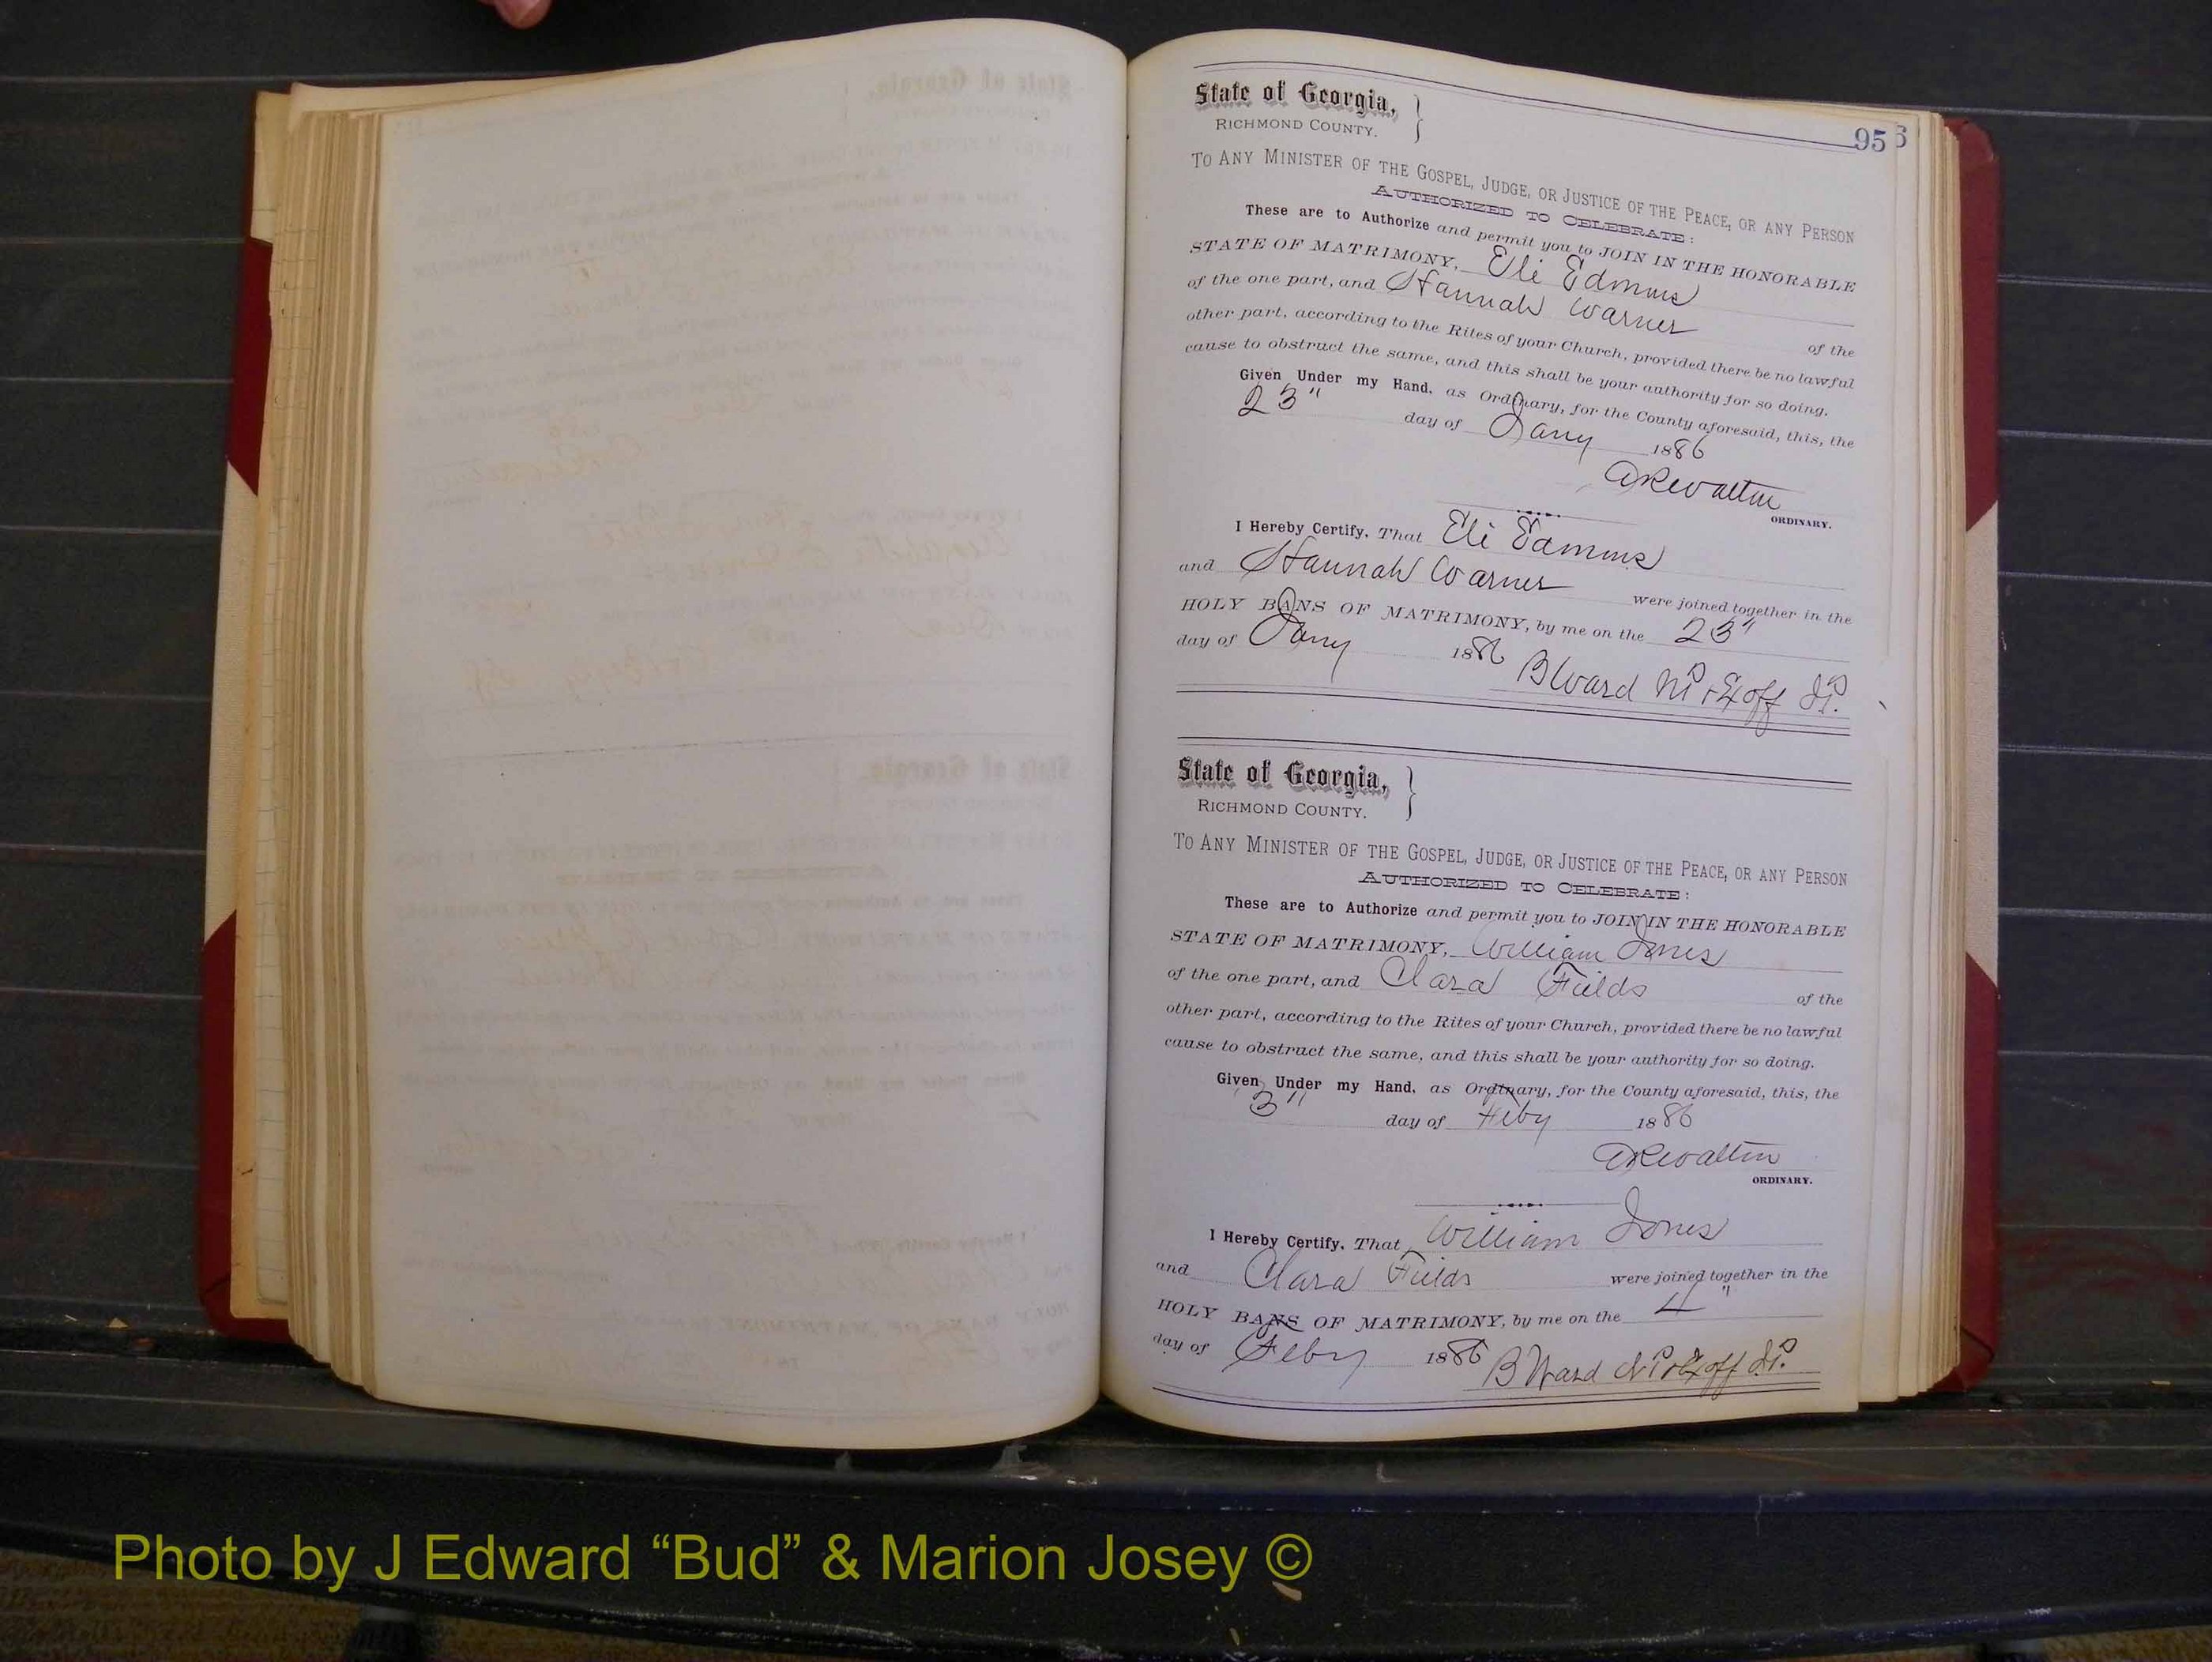 State of Georgia,
RICHMOND COUNTY.
95
TO ANY MINISTER OF THE GOSPEL, JUDGE, OR JUSTICE OF THE PEACE, OR ANY PERSON
AUTHORIZED TO CELEBRATE:
These are to Authorize and permit you to JOIN IN THE HONORABLE
STATE OF MATRIMONY, Eli Edmus
of the one part, and Hannah Warner of the
other part, according to the Rites of your Church, provided there be no lawful
cause to obstruct the same, and this shall be your authority for so doing.
Given Under my Hand, as Ordinary, for the County aforesaid, this, the
23" day of Jany 1886
ARWalton
ORDINARY.
I Hereby Certify, That Eli Edmus
and Hannah Warner were joined together in the
HOLY BANS OF MATRIMONY, by me on the 23"
day of Jany 1886 B Ward NP & Ex off JP.
State of Georgia,
RICHMOND COUNTY.
TO ANY MINISTER OF THE GOSPEL, JUDGE, OR JUSTICE OF THE PEACE, OR ANY PERSON
AUTHORIZED TO CELEBRATE:
These are to Authorize and permit you to JOIN IN THE HONORABLE
STATE OF MATRIMONY, William Jones
of the one part, and Clara Fields of the
other part, according to the Rites of your Church, provided there be no lawful
cause to obstruct the same, and this shall be your authority for so doing.
Given Under my Hand, as Ordinary, for the County aforesaid, this, the
3" day of Feby 1886
ARWalton
ORDINARY.
I Hereby Certify, That William Jones
and Clara Fields were joined together in the
HOLY BANS OF MATRIMONY, by me on the 4"
day of Feby 1886 B Ward NP & Ex off JP.
Photo by J Edward “Bud” & Marion Josey ©